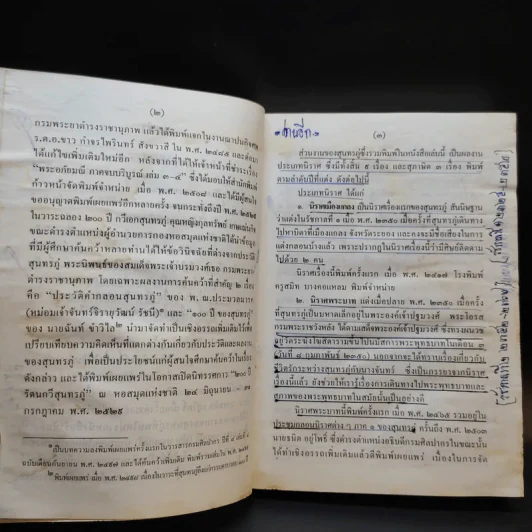 (๒)
กรมพระยาดำรงราชานุภาพ แล้วได้พิมพ์แจกในงานฌาปนกิจศพ
ร.ต.อ.ชาว กำจรไพรินทร์ สังขวาสี ใน พ.ศ. ๒๔๙๕ และต่อมา
ได้แก้ไขเพิ่มเติมใหม่อีก หลังจากที่ได้ให้เจ้าหน้าที่ชำระเรื่อง
"พระอภัยมณี ภาคจบบริบูรณ์ เล่ม ๓-๔" ซึ่งได้มอบให้สำนักพิมพ์
ก้าวหน้าจัดพิมพ์จำหน่าย เมื่อ พ.ศ. ๒๕๐๙ และได้มีผู้สนใจ
ขออนุญาตพิมพ์เผยแพร่อีกหลายครั้ง จนกระทั่งถึงปี พ.ศ. ๒๕๒๙
ในวาระฉลอง ๒๐๐ ปี กวีเอกสุนทรภู่ คุณหญิงกุลทรัพย์ เกษแม่นกิจ
ขณะดำรงตำแหน่งผู้อำนวยการกองหอสมุดแห่งชาติได้นำข้อมูล
ที่มีผู้ศึกษาค้นคว้าหลายท่านได้ให้ข้อวินิจฉัยที่ต่างจากประวัติ
สุนทรภู่ พระนิพนธ์ของสมเด็จพระเจ้าบรมวงศ์เธอ กรมพระยา
ดำรงราชานุภาพ โดยเฉพาะผลงานการค้นคว้าที่สำคัญ ๒ เรื่อง
คือ "ประวัติคำกลอนสุนทรภู่" ของ พ. ณ.ประมวลมารค
(หม่อมเจ้าจันทร์จิรายุวัฒน์ รัชนี)๑ และ "๑๐๐ ปี ของสุนทรภู่"
ของ นายฉันท์ ขำวิไล๒ นำมาจัดทำเป็นเชิงอรรถเพิ่มเติมไว้เพื่อ
เปรียบเทียบความคิดเห็นที่แตกต่างกันเกี่ยวกับประวัติและผลงาน
ของสุนทรภู่ เพื่อเป็นประโยชน์แก่ผู้สนใจศึกษาค้นคว้าในเรื่อง
ดังกล่าว และได้พิมพ์เผยแพร่ในโอกาสเปิดนิทรรศการ "๒๐๐ ปี
รัตนกวีสุนทรภู่" ณ หอสมุดแห่งชาติ ๒๔ มิถุนายน - ๓๑
กรกฎาคม พ.ศ. ๒๕๒๙
๑เป็นบทความลงพิมพ์เผยแพร่ครั้งแรกในวารสารกรมศิลปากร ปีที่
ฉบับเดือนกันยายน พ.ศ. ๒๔๙๗ และได้ค้นคว้าเพิ่มเติม พิมพ์รวมเล่มใน พ.ศ.
๒พิมพ์เผยแพร่ เมื่อ พ.ศ. ๒๔๙๘ เนื่องในวาระที่สุนทรภู่
(๓)
ส่วนงานของสุนทรภู่ซึ่งรวมพิมพ์ในหนังสือเล่มนี้ เป็นผลงาน
ประเภทนิราศ ซึ่งมีทั้งสิ้น ๙ เรื่อง และสุภาษิต ๓ เรื่อง พิมพ์
ตามลำดับปีที่แต่ง ดังต่อไปนี้
ประเภทนิราศ ได้แก่
๑. นิราศเมืองแกลง เป็นนิราศเรื่องแรกของสุนทรภู่ สันนิษฐาน
ว่าแต่งในรัชกาลที่ ๑ เมื่อ พ.ศ. ๒๓๕๐ เมื่อครั้งที่สุนทรภู่เดินทาง
ไปหาบิดาที่เมืองแกลง จังหวัดระยอง และคงจะมีชื่อเสียงในการ
แต่งกลอนบ้างแล้ว เพราะปรากฏในนิราศเรื่องนี้ว่ามีศิษย์ติดตาม
ไปด้วย ๒ คน
นิราศเรื่องนี้พิมพ์ครั้งแรก เมื่อ พ.ศ. ๒๔๑๗ โรงพิมพ์
ครูสมิท บางคอแหลม พิมพ์จำหน่าย
๒. นิราศพระบาท แต่งเมื่อปลาย พ.ศ. ๒๓๕๐ เมื่อครั้ง
ที่สุนทรภู่เป็นมหาดเล็กอยู่ในพระองค์เจ้าปฐมวงศ์ พระโอรส
กรมพระราชวังหลัง ได้ตามเสด็จพระองค์เจ้าปฐมวงศ์ ซึ่งทรงผนวช
อยู่วัดระฆังโฆสิตารามขึ้นไปนมัสการพระพุทธบาทในเดือน ๓
(วันที่ ๘ กุมภาพันธ์ ๒๓๕๐) นอกจากจะได้ทราบเรื่องเกี่ยวกับ
ชีวิตรักระหว่างสุนทรภู่กับนางจันทร์ ซึ่งเป็นภรรยาจากนิราศ
เรื่องนี้แล้ว ยังช่วยให้เรารู้เรื่องการเดินทางไปพระพุทธบาทและ
สภาพของพระพุทธบาทในสมัยนั้นเป็นอย่างดี
นิราศพระบาทนี้พิมพ์ครั้งแรก เมื่อ พ.ศ. ๒๔๖๕ รวมอยู่ใน
ประชุมกลอนนิราศต่าง ๆ ภาค ๑ ของสุนทรภู่ ครั้นถึง พ.ศ. ๒๕๐๓
นายธนิต อยู่โพธิ์ ซึ่งดำรงตำแหน่งอธิบดีกรมศิลปากรในขณะนั้น
ได้ทำเชิงอรรถเพิ่มเติมแล้วตีพิมพ์เผยแพร่ เนื่องในการจัด